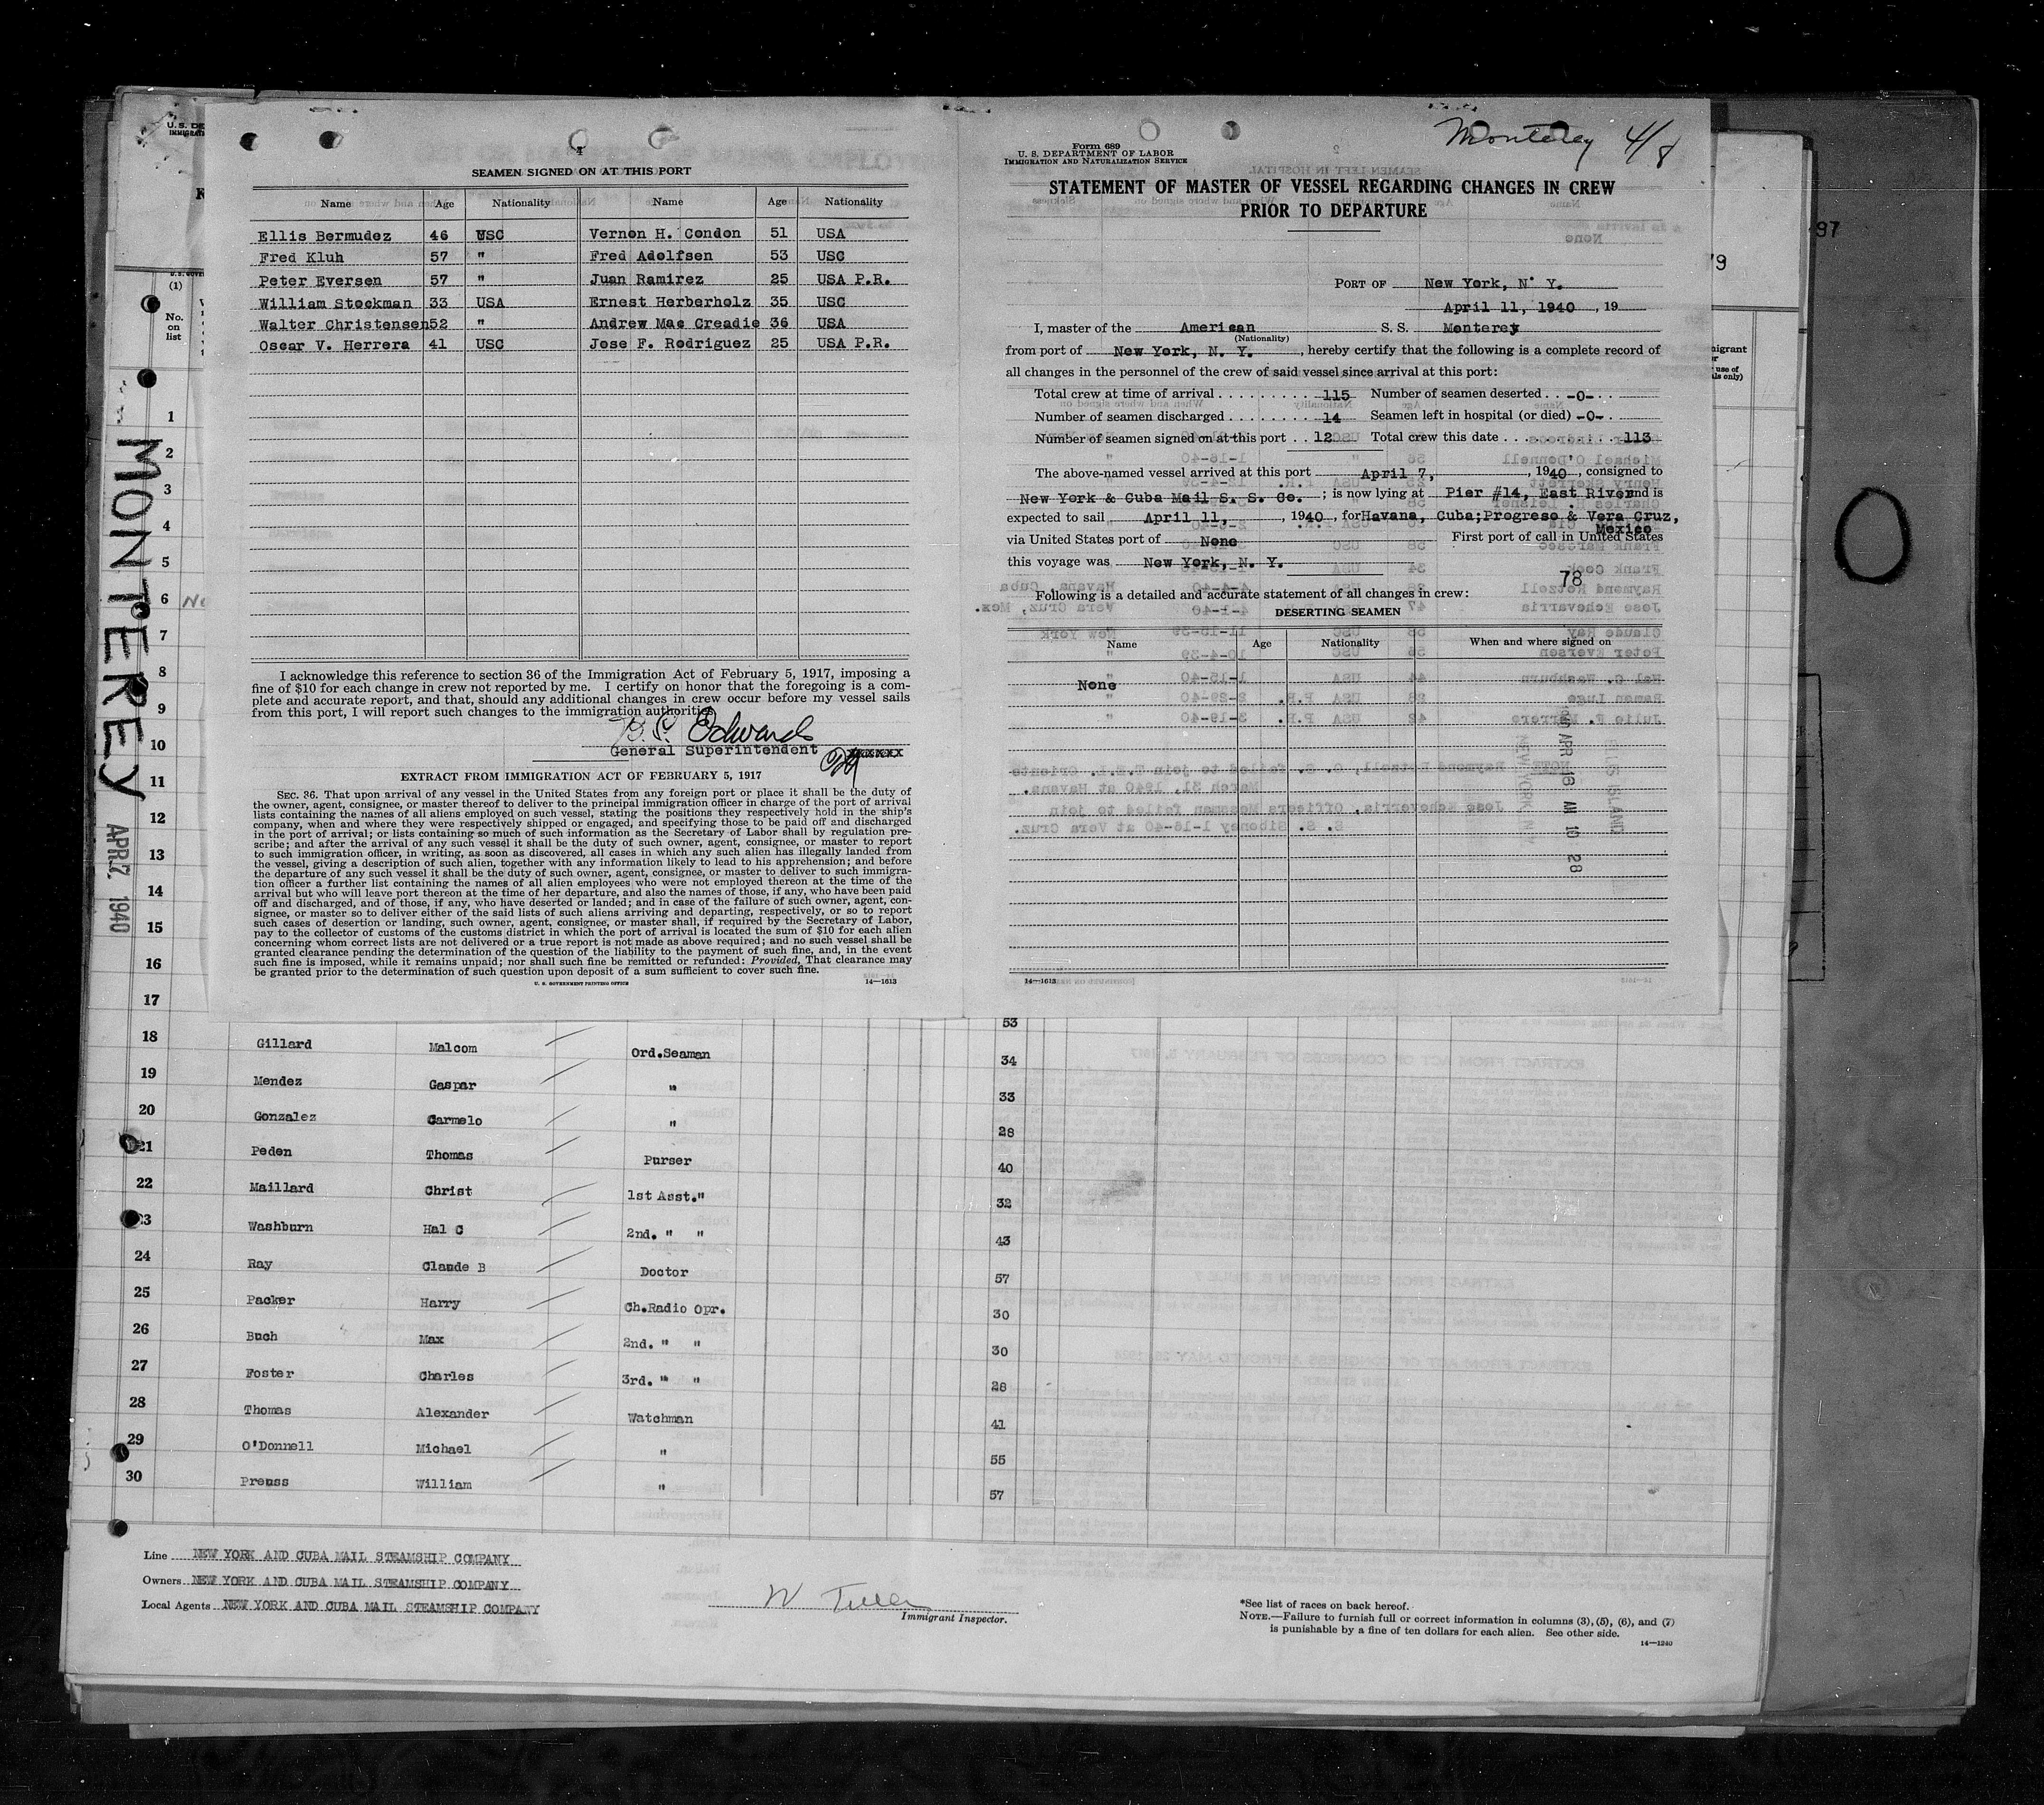 4
SEAMEN SIGNED ON AT THIS PORT
Name Age Nationality Name Age Nationality
Ellis Bermudez 46 USC Vernon H. Condon 51 USA
Fred Kluh 57 " Fred Adolfsen 53 USC
Peter Eversen 57 " Juan Ramirez 25 USA P.R.
William Stockman 33 USA Ernest Herberholz 35 USC
Walter Christensen 52 " Andrew Mac Creadie 36 USA
Oscar V. Herrera 41 USC Jose F. Rodriguez 25 USA P.R.
I acknowledge this reference to section 36 of the Immigration Act of February 5, 1917, imposing a
fine of $10 for each change in crew not reported by me. I certify on honor that the foregoing is a com-
plete and accurate report, and that, should any additional changes in crew occur before my vessel sails
from this port, I will report such changes to the immigration authorities.
Edwards
General Superintendent
EXTRACT FROM IMMIGRATION ACT OF FEBRUARY 5, 1917
SEC. 36. That upon arrival of any vessel in the United States from any foreign port or place it shall be the duty of
the owner, agent, consignee, or master thereof to deliver to the principal immigration officer in charge of the port of arrival
lists containing the names of all aliens employed on such vessel, stating the positions they respectively hold in the ship's
company, when and where they were respectively shipped or engaged, and specifying those to be paid off and discharged
in the port of arrival; or lists containing so much of such information as the Secretary of Labor shall by regulation pre-
scribe; and after the arrival of any such vessel it shall be the duty of such owner, agent, consignee, or master to report
to such immigration officer, in writing, as soon as discovered, all cases in which any such alien has illegally landed from
the vessel, giving a description of such alien, together with any information likely to lead to his apprehension; and before
the departure of any such vessel it shall be the duty of such owner, agent, consignee, or master to deliver to such immigra-
tion officer a further list containing the names of all alien employees who were not employed thereon at the time of the
arrival but who will leave port thereon at the time of her departure, and also the names of those, if any, who have been paid
off and discharged, and of those, if any, who have deserted or landed; and in case of the failure of such owner, agent, con-
signee, or master so to deliver either of the said lists of such aliens arriving and departing, respectively, or so to report
such cases of desertion or landing, such owner, agent, consignee, or master shall, if required by the Secretary of Labor,
pay to the collector of customs of the customs district in which the port of arrival is located the sum of $10 for each alien
concerning whom correct lists are not delivered or a true report is not made as above required; and no such vessel shall be
granted clearance pending the determination of the question of the liability to the payment of such fine, and, in the event
such fine is imposed, while it remains unpaid; nor shall such fine be remitted or refunded: Provided, That clearance may
be granted prior to the determination of such question upon deposit of a sum sufficient to cover such fine.
U. S. GOVERNMENT PRINTING OFFICE 14—1613
Monterey 4/8
Form 689
U. S. DEPARTMENT OF LABOR
IMMIGRATION AND NATURALIZATION SERVICE
STATEMENT OF MASTER OF VESSEL REGARDING CHANGES IN CREW
PRIOR TO DEPARTURE
PORT OF New York, N. Y.
April 11, 1940, 19
I, master of the American S. S. Monterey
(Nationality)
from port of New York, N. Y., hereby certify that the following is a complete record of
all changes in the personnel of the crew of said vessel since arrival at this port:
Total crew at time of arrival 115 Number of seamen deserted -0-
Number of seamen discharged 14 Seamen left in hospital (or died) -0-
Number of seamen signed on at this port 12 Total crew this date 113
The above-named vessel arrived at this port April 7, 1940, consigned to
New York & Cuba Mail S. S. Co.; is now lying at Pier #14, East River and is
expected to sail April 11, 1940, for Havana, Cuba; Progreso & Vera Cruz,
Mexico
via United States port of None First port of call in United States
this voyage was New York, N. Y.
78
Following is a detailed and accurate statement of all changes in crew:
DESERTING SEAMEN
Name Age Nationality When and where signed on
None
14—1613
ELLIS ISLAND
NEW YORK, N.Y.
APR 18 AM 10 28
97
MONTEREY APR 7 1940
(1)
No.
on
list
1
2
3
4
5
6
7
8
9
10
11
12
13
14
15
16
17
53
18 Gillard Malcom Ord.Seaman 34
19 Mendez Gaspar " 33
20 Gonzalez Carmelo " 28
21 Peden Thomas Purser 40
22 Maillard Christ 1st Asst." 32
23 Washburn Hal C 2nd. " " 43
24 Ray Claude B Doctor 57
25 Packer Harry Ch.Radio Opr. 30
26 Buch Max 2nd. " " 30
27 Foster Charles 3rd. " " 28
28 Thomas Alexander Watchman 41
29 O'Donnell Michael " 55
30 Preuss William " 57
Line NEW YORK AND CUBA MAIL STEAMSHIP COMPANY
Owners NEW YORK AND CUBA MAIL STEAMSHIP COMPANY
Local Agents NEW YORK AND CUBA MAIL STEAMSHIP COMPANY
Immigrant Inspector.
*See list of races on back hereof.
NOTE.—Failure to furnish full or correct information in columns (3), (5), (6), and (7)
is punishable by a fine of ten dollars for each alien. See other side.
14—1240